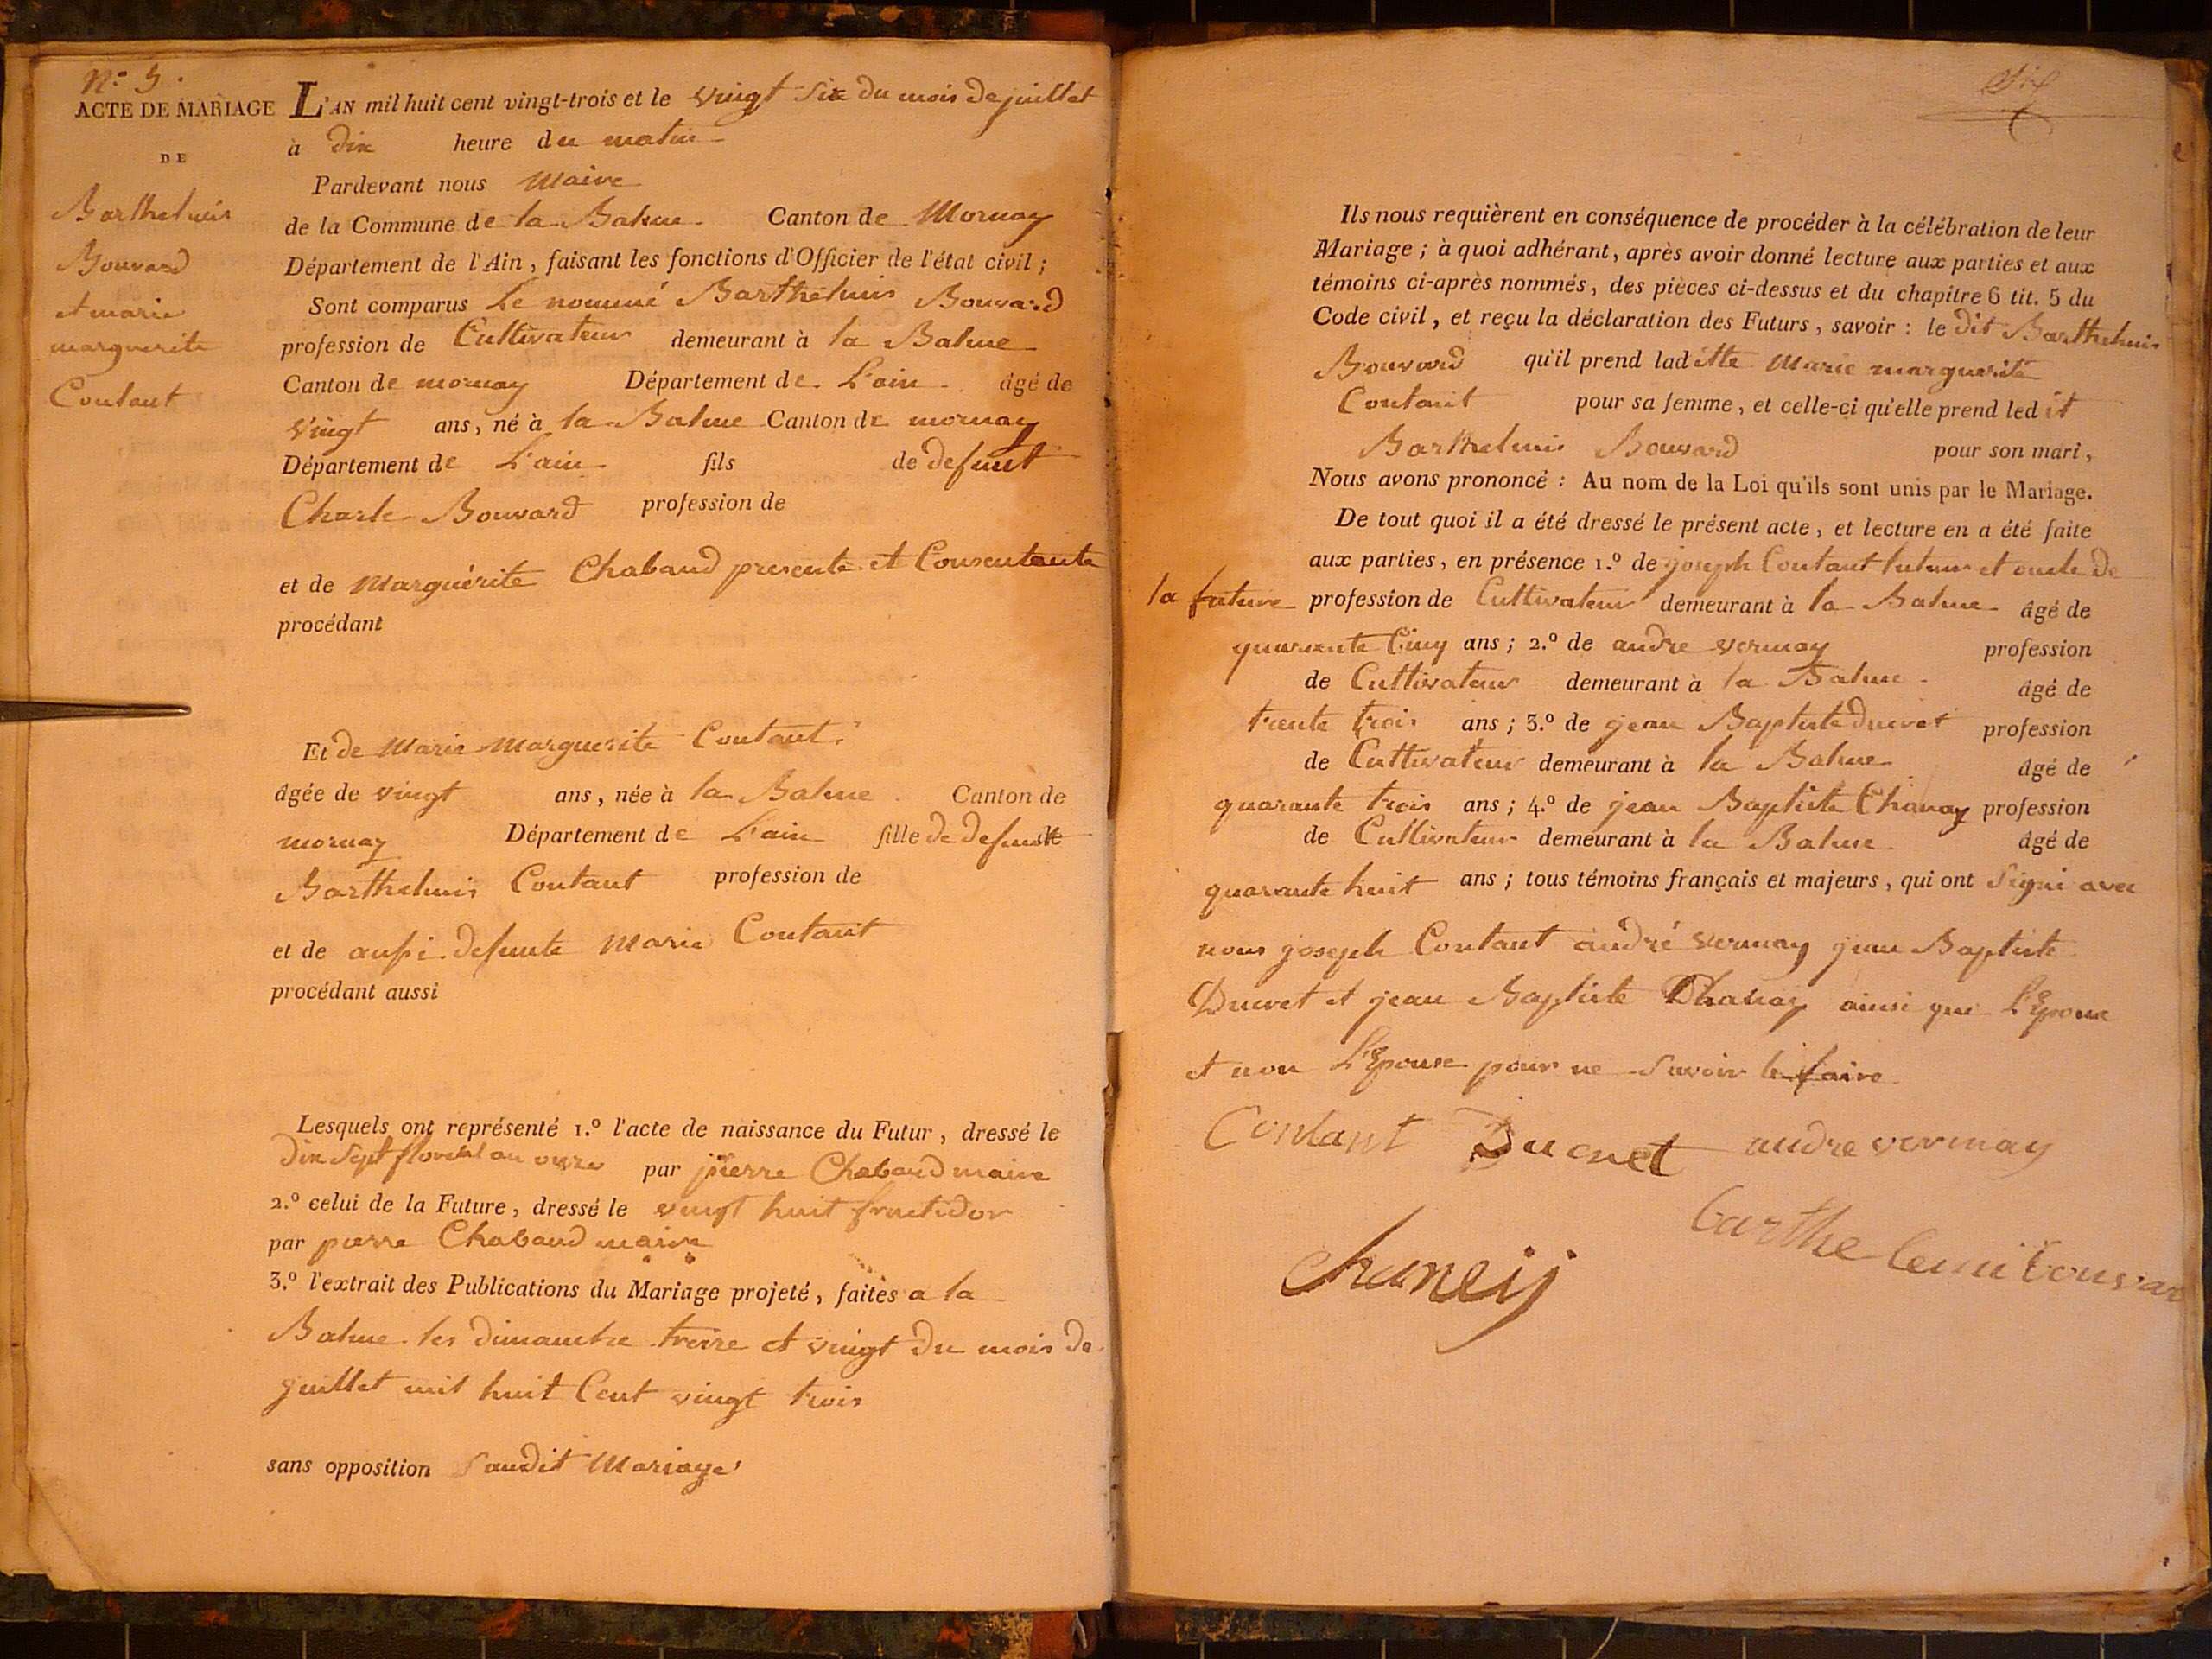 N.o 5.
ACTE DE MARIAGE
DE
Barthelmis
Bouvard
et marie
marguerite
Coutant
L'AN mil huit cent vingt-trois et le vingt six du mois de juillet
à dix heure du matin
Pardevant nous Maire
de la Commune de la Balme Canton de Mornay
Département de l'Ain, faisant les fonctions d'Officier de l'état civil;
Sont comparus Le nommé Barthelmis Bouvard
profession de Cultivateur demeurant à la Balme
Canton de mornay Département de L'ain âgé de
vingt ans, né à la Balme Canton de mornay
Département de L'ain fils de defunt
Charle Bouvard profession de
et de Marguérite Chabaud presente et Consentante
procédant
Et de Marie Marguerite Coutant
âgée de vingt ans, née à la Balme Canton de
mornay Département de L'ain fille de defunt
Barthelmis Coutant profession de
et de aussi defunte Marie Coutant
procédant aussi
Lesquels ont représenté 1.º l'acte de naissance du Futur, dressé le
dix sept floreal an onze par pierre Chabaud maire
2.º celui de la Future, dressé le vingt huit fructidor
par pierre Chabaud maire
3.º l'extrait des Publications du Mariage projeté, faites a la
Balme les dimanche treize et vingt du mois de
juillet mil huit Cent vingt trois
sans opposition audit Mariage
Six
Ils nous requièrent en conséquence de procéder à la célébration de leur
Mariage; à quoi adhérant, après avoir donné lecture aux parties et aux
témoins ci-après nommés, des pièces ci-dessus et du chapitre 6 tit. 5 du
Code civil, et reçu la déclaration des Futurs, savoir: le dit Barthelmis
Bouvard qu'il prend laditte Marie marguerite
Coutant pour sa femme, et celle-ci qu'elle prend ledit
Barthelmis Bouvard pour son mari,
Nous avons prononcé: Au nom de la Loi qu'ils sont unis par le Mariage.
De tout quoi il a été dressé le présent acte, et lecture en a été faite
aux parties, en présence 1.º de joseph Coutant tuteur et oncle de
la future profession de Cultivateur demeurant à la Balme âgé de
quarante Cinq ans; 2.º de andre vernay profession
de Cultivateur demeurant à la Balme âgé de
trente trois ans; 3.º de jean Baptiste ducret profession
de Cultivateur demeurant à la Balme âgé de
quarante trois ans; 4.º de jean Baptiste Chanay profession
de Cultivateur demeurant à la Balme âgé de
quarante huit ans; tous témoins français et majeurs, qui ont Signé avec
nous joseph Coutant andré vernay jean Baptiste
Ducret et jean Baptiste Chanay ainsi que L'Epoux
et non L'Epouse pour ne savoir le faire
Contant Ducret andre vernay
Chaneij
barthelemi bouvar